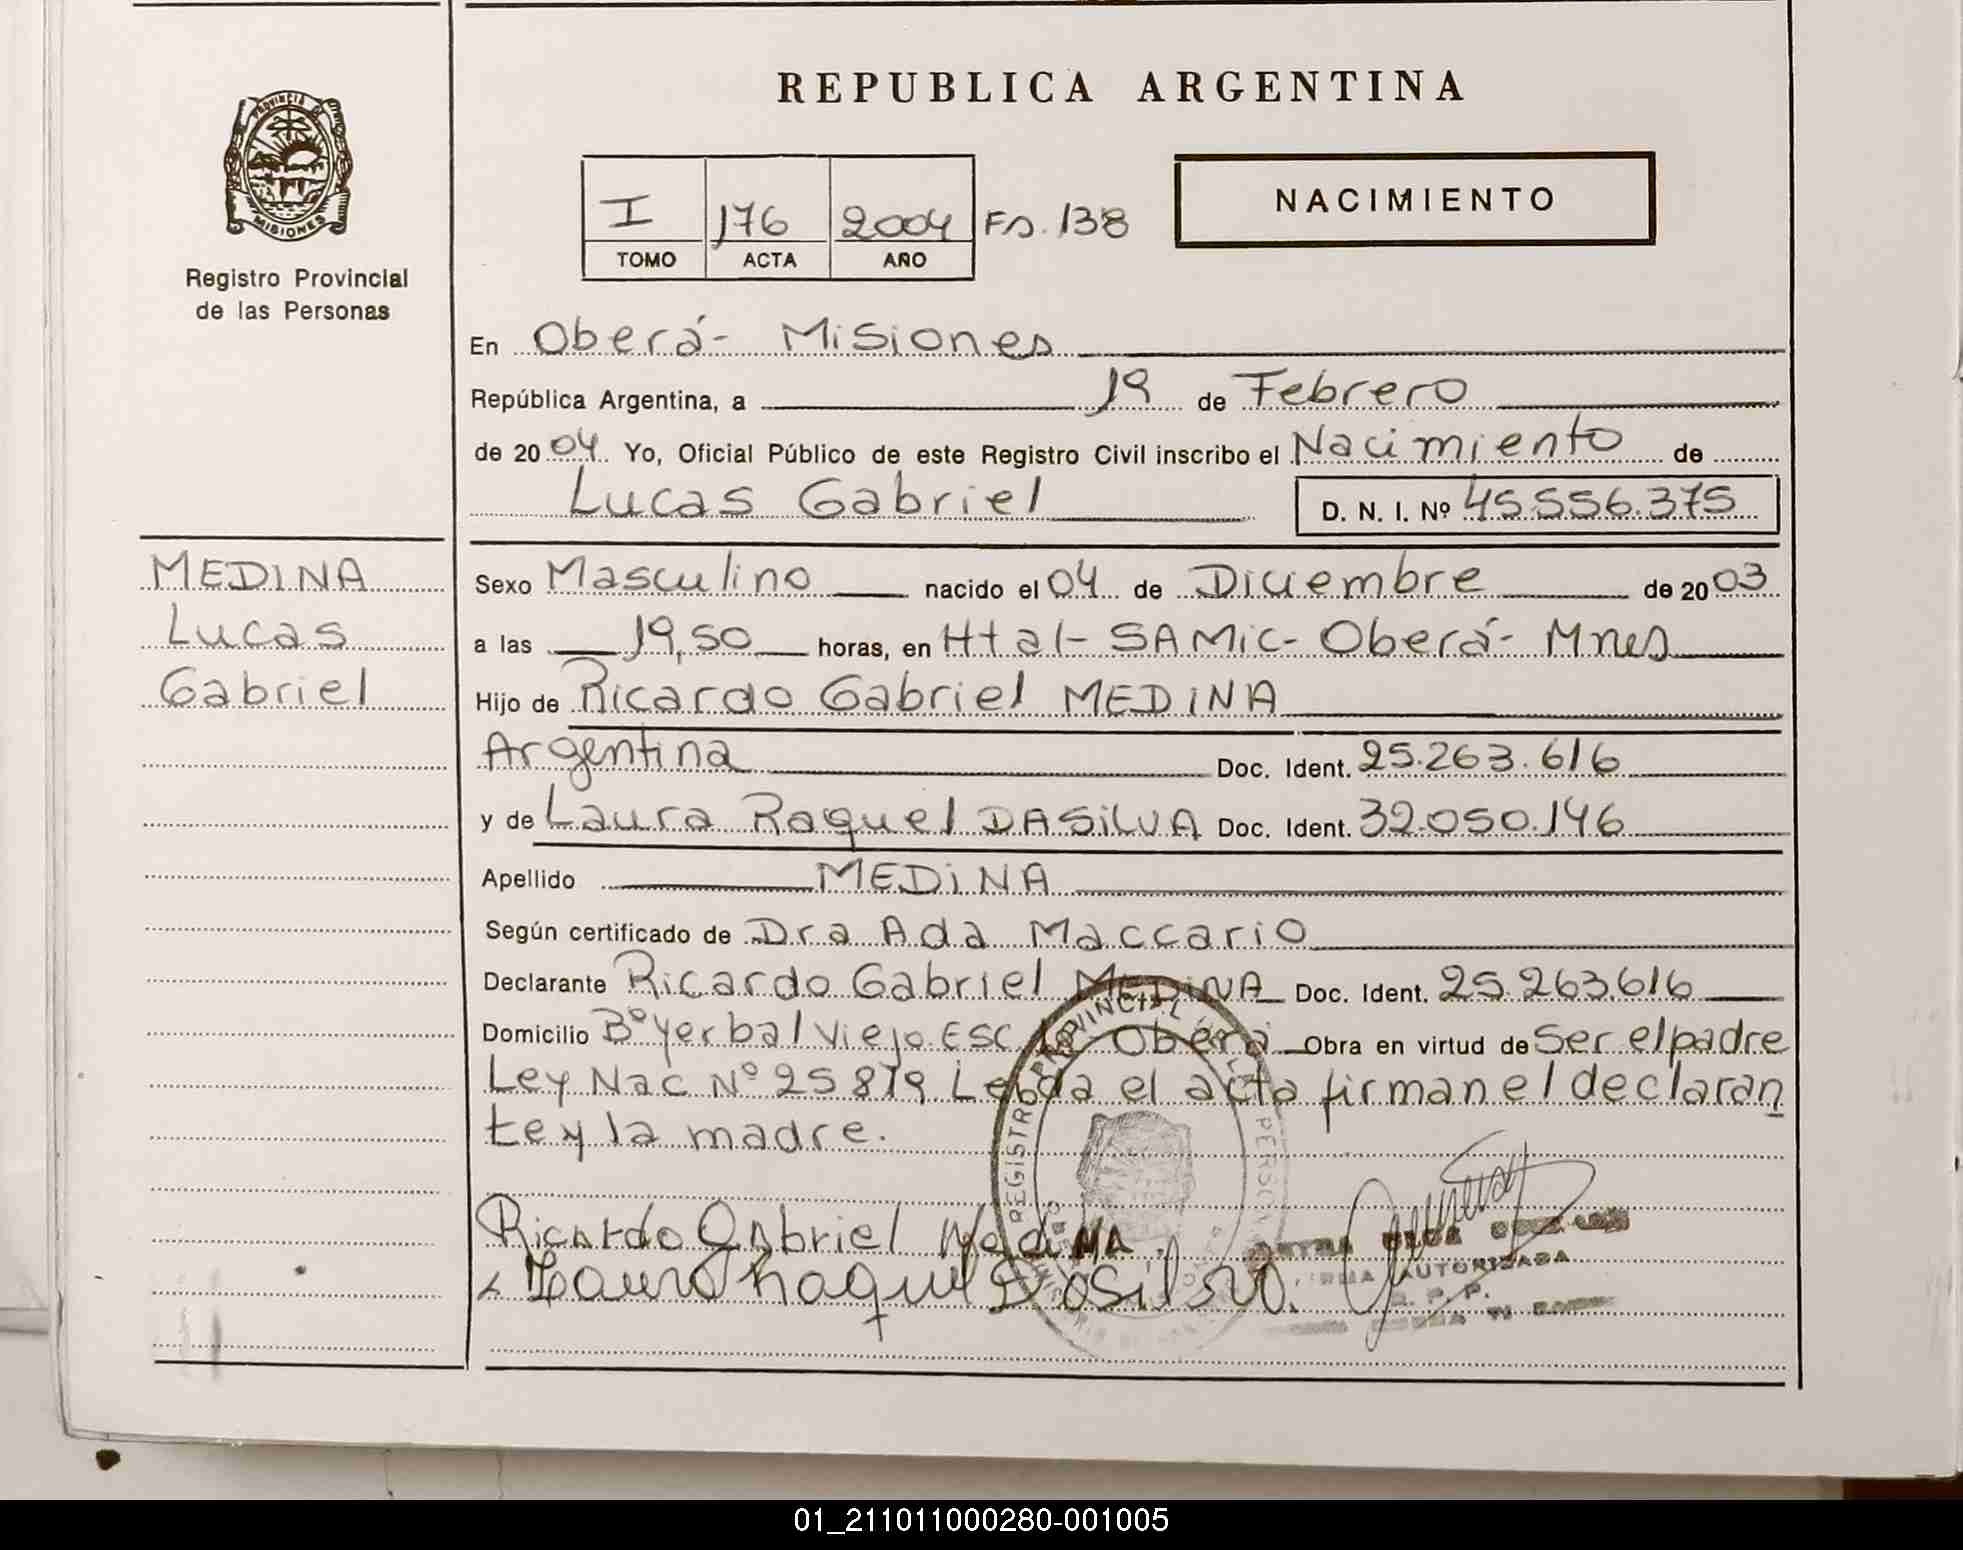 REPUBLICA ARGENTINA
PROVINCIA DE
MISIONES
Registro Provincial
de las Personas
I 176 2004 Fs. 138
TOMO ACTA AÑO
NACIMIENTO
En Oberá- Misiones
República Argentina, a 19 de Febrero
de 2004 Yo, Oficial Público de este Registro Civil inscribo el Nacimiento de
Lucas Gabriel D. N. I. Nº 45.556.375
MEDINA
Lucas
Gabriel
Sexo Masculino nacido el 04 de Diciembre de 2003
a las 19,50 horas, en Htal- SAMic- Oberá- Mnes
Hijo de Ricardo Gabriel MEDINA
Argentina Doc. Ident. 25.263.616
y de Laura Raquel DASILVA Doc. Ident. 32.050.146
Apellido MEDINA
Según certificado de Dra Ada Maccario
Declarante Ricardo Gabriel MEDINA Doc. Ident. 25.263.616
Domicilio Bº Yerbal Viejo Esc Oberá Obra en virtud de Ser el padre
Ley Nac Nº 25879 Leida el acta firman el declaran
te y la madre.
Ricardo Gabriel Medina
Laura Raquel Dasilva.
REGISTRO PROVINCIAL
AUTORIZADA
R. P. P.
01_211011000280-001005